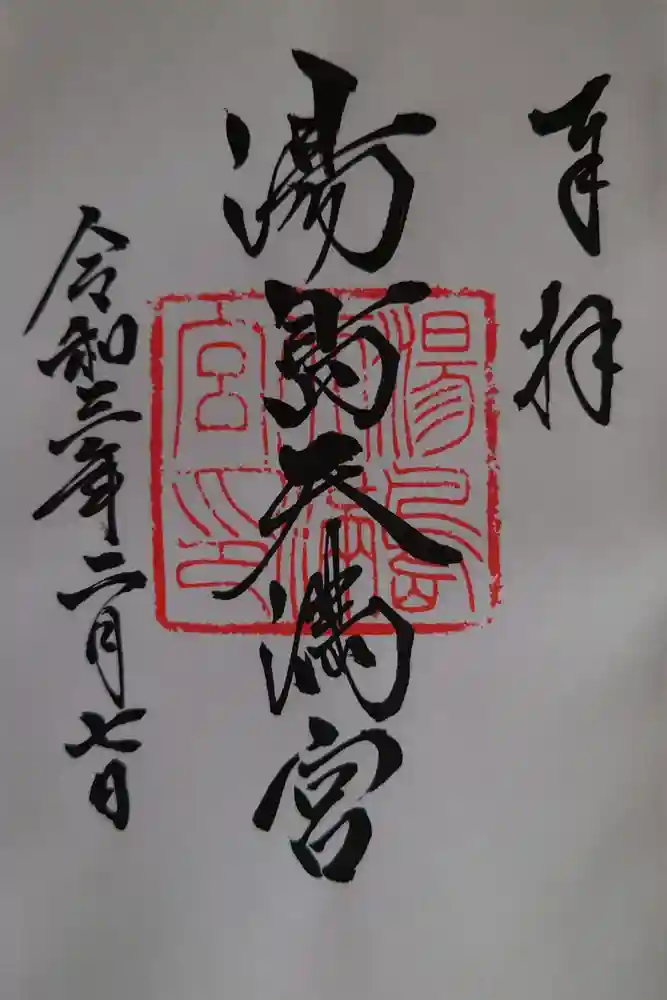 奉拝
湯島天満宮
湯島天満宮印
令和三年二月七日